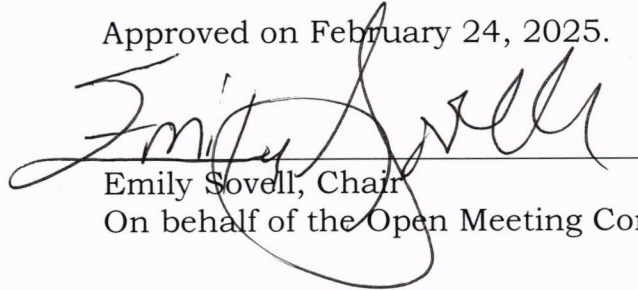 Approved on February 24, 2025.
Emily Sovell
Emily Sovell, Chair
On behalf of the Open Meeting